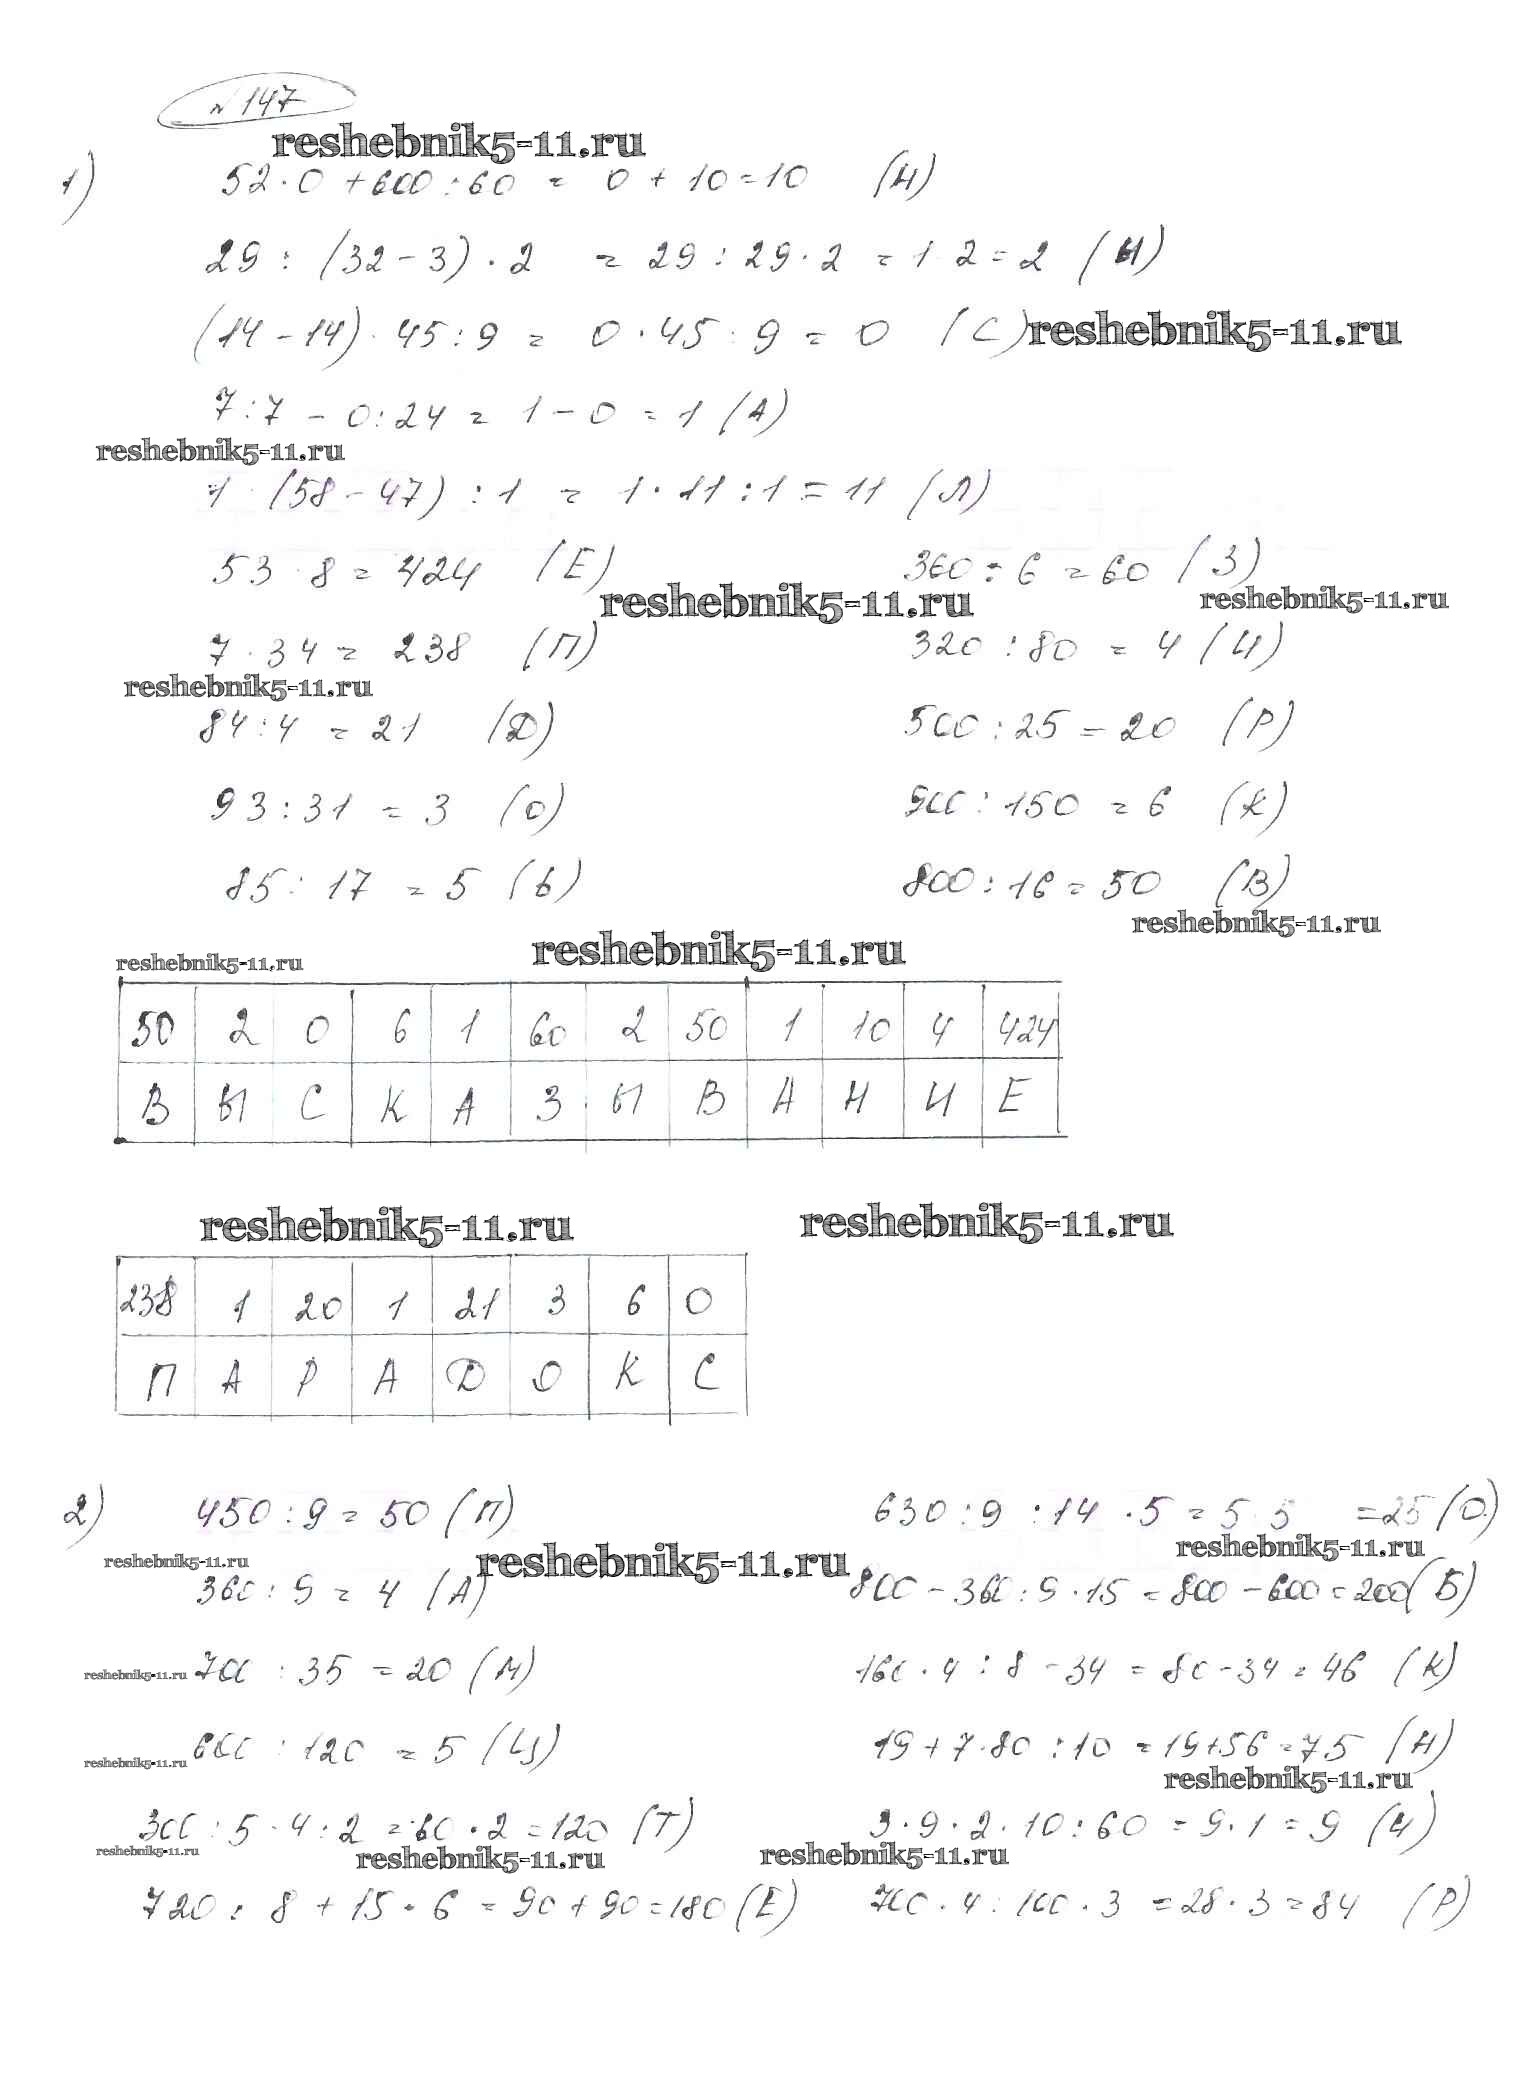 № 147
reshebnik5-11.ru
1) 52 · 0 + 600 : 60 = 0 + 10 = 10 (Н)
29 : (32 - 3) · 2 = 29 : 29 · 2 = 1 · 2 = 2 (Ы)
(14 - 14) · 45 : 9 = 0 · 45 : 9 = 0 (С) reshebnik5-11.ru
7 : 7 - 0 : 24 = 1 - 0 = 1 (А)
reshebnik5-11.ru
1 · (58 - 47) : 1 = 1 · 11 : 1 = 11 (Л)
53 · 8 = 424 (Е) 360 : 6 = 60 (З)
reshebnik5-11.ru reshebnik5-11.ru
7 · 34 = 238 (П) 320 : 80 = 4 (И)
reshebnik5-11.ru
84 : 4 = 21 (Д) 500 : 25 = 20 (Р)
93 : 31 = 3 (О) 900 : 150 = 6 (К)
85 : 17 = 5 (Ь) 800 : 16 = 50 (В)
reshebnik5-11.ru
reshebnik5-11.ru reshebnik5-11.ru
50 2 0 6 1 60 2 50 1 10 4 424
В Ы С К А З Ы В А Н И Е
reshebnik5-11.ru reshebnik5-11.ru
238 1 20 1 21 3 6 0
П А Р А Д О К С
2) 450 : 9 = 50 (П) 630 : 9 : 14 · 5 = 5 · 5 = 25 (О)
reshebnik5-11.ru reshebnik5-11.ru reshebnik5-11.ru
360 : 9 = 4 (А) 800 - 360 : 9 · 15 = 800 - 600 = 200 (Б)
reshebnik5-11.ru 700 : 35 = 20 (М) 160 · 4 : 8 - 34 = 80 - 34 = 46 (К)
reshebnik5-11.ru 600 : 120 = 5 (Ц) 19 + 7 · 80 : 10 = 19 + 56 = 75 (Н)
reshebnik5-11.ru
300 : 5 · 4 : 2 = 60 · 2 = 120 (Т) 3 · 9 · 2 · 10 : 60 = 9 · 1 = 9 (И)
reshebnik5-11.ru reshebnik5-11.ru reshebnik5-11.ru
720 : 8 + 15 · 6 = 90 + 90 = 180 (Е) 700 · 4 : 100 · 3 = 28 · 3 = 84 (Р)